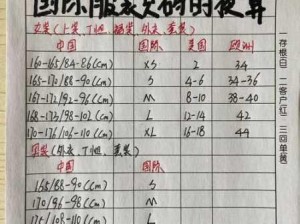 国际服装尺码的换算
女装(上装、T恤、裙装、外衣、套装)
中国 国际 美国 欧洲
160-165/84-86(cm) XS 2 34
165-170/88-90(cm) S 4-6 34-36
167-172/92-96(cm) M 8-10 38-40
168-173/98-102(cm) L 12-14 42
170-176/106-110(cm) XL 16-18 44
男装(外衣、T恤、套装)
中国 国际
165/88-90(cm) S
170/96-98(cm) M
175/108-110(cm) L
1存根(白) 二客户(红) 三回单(黄)